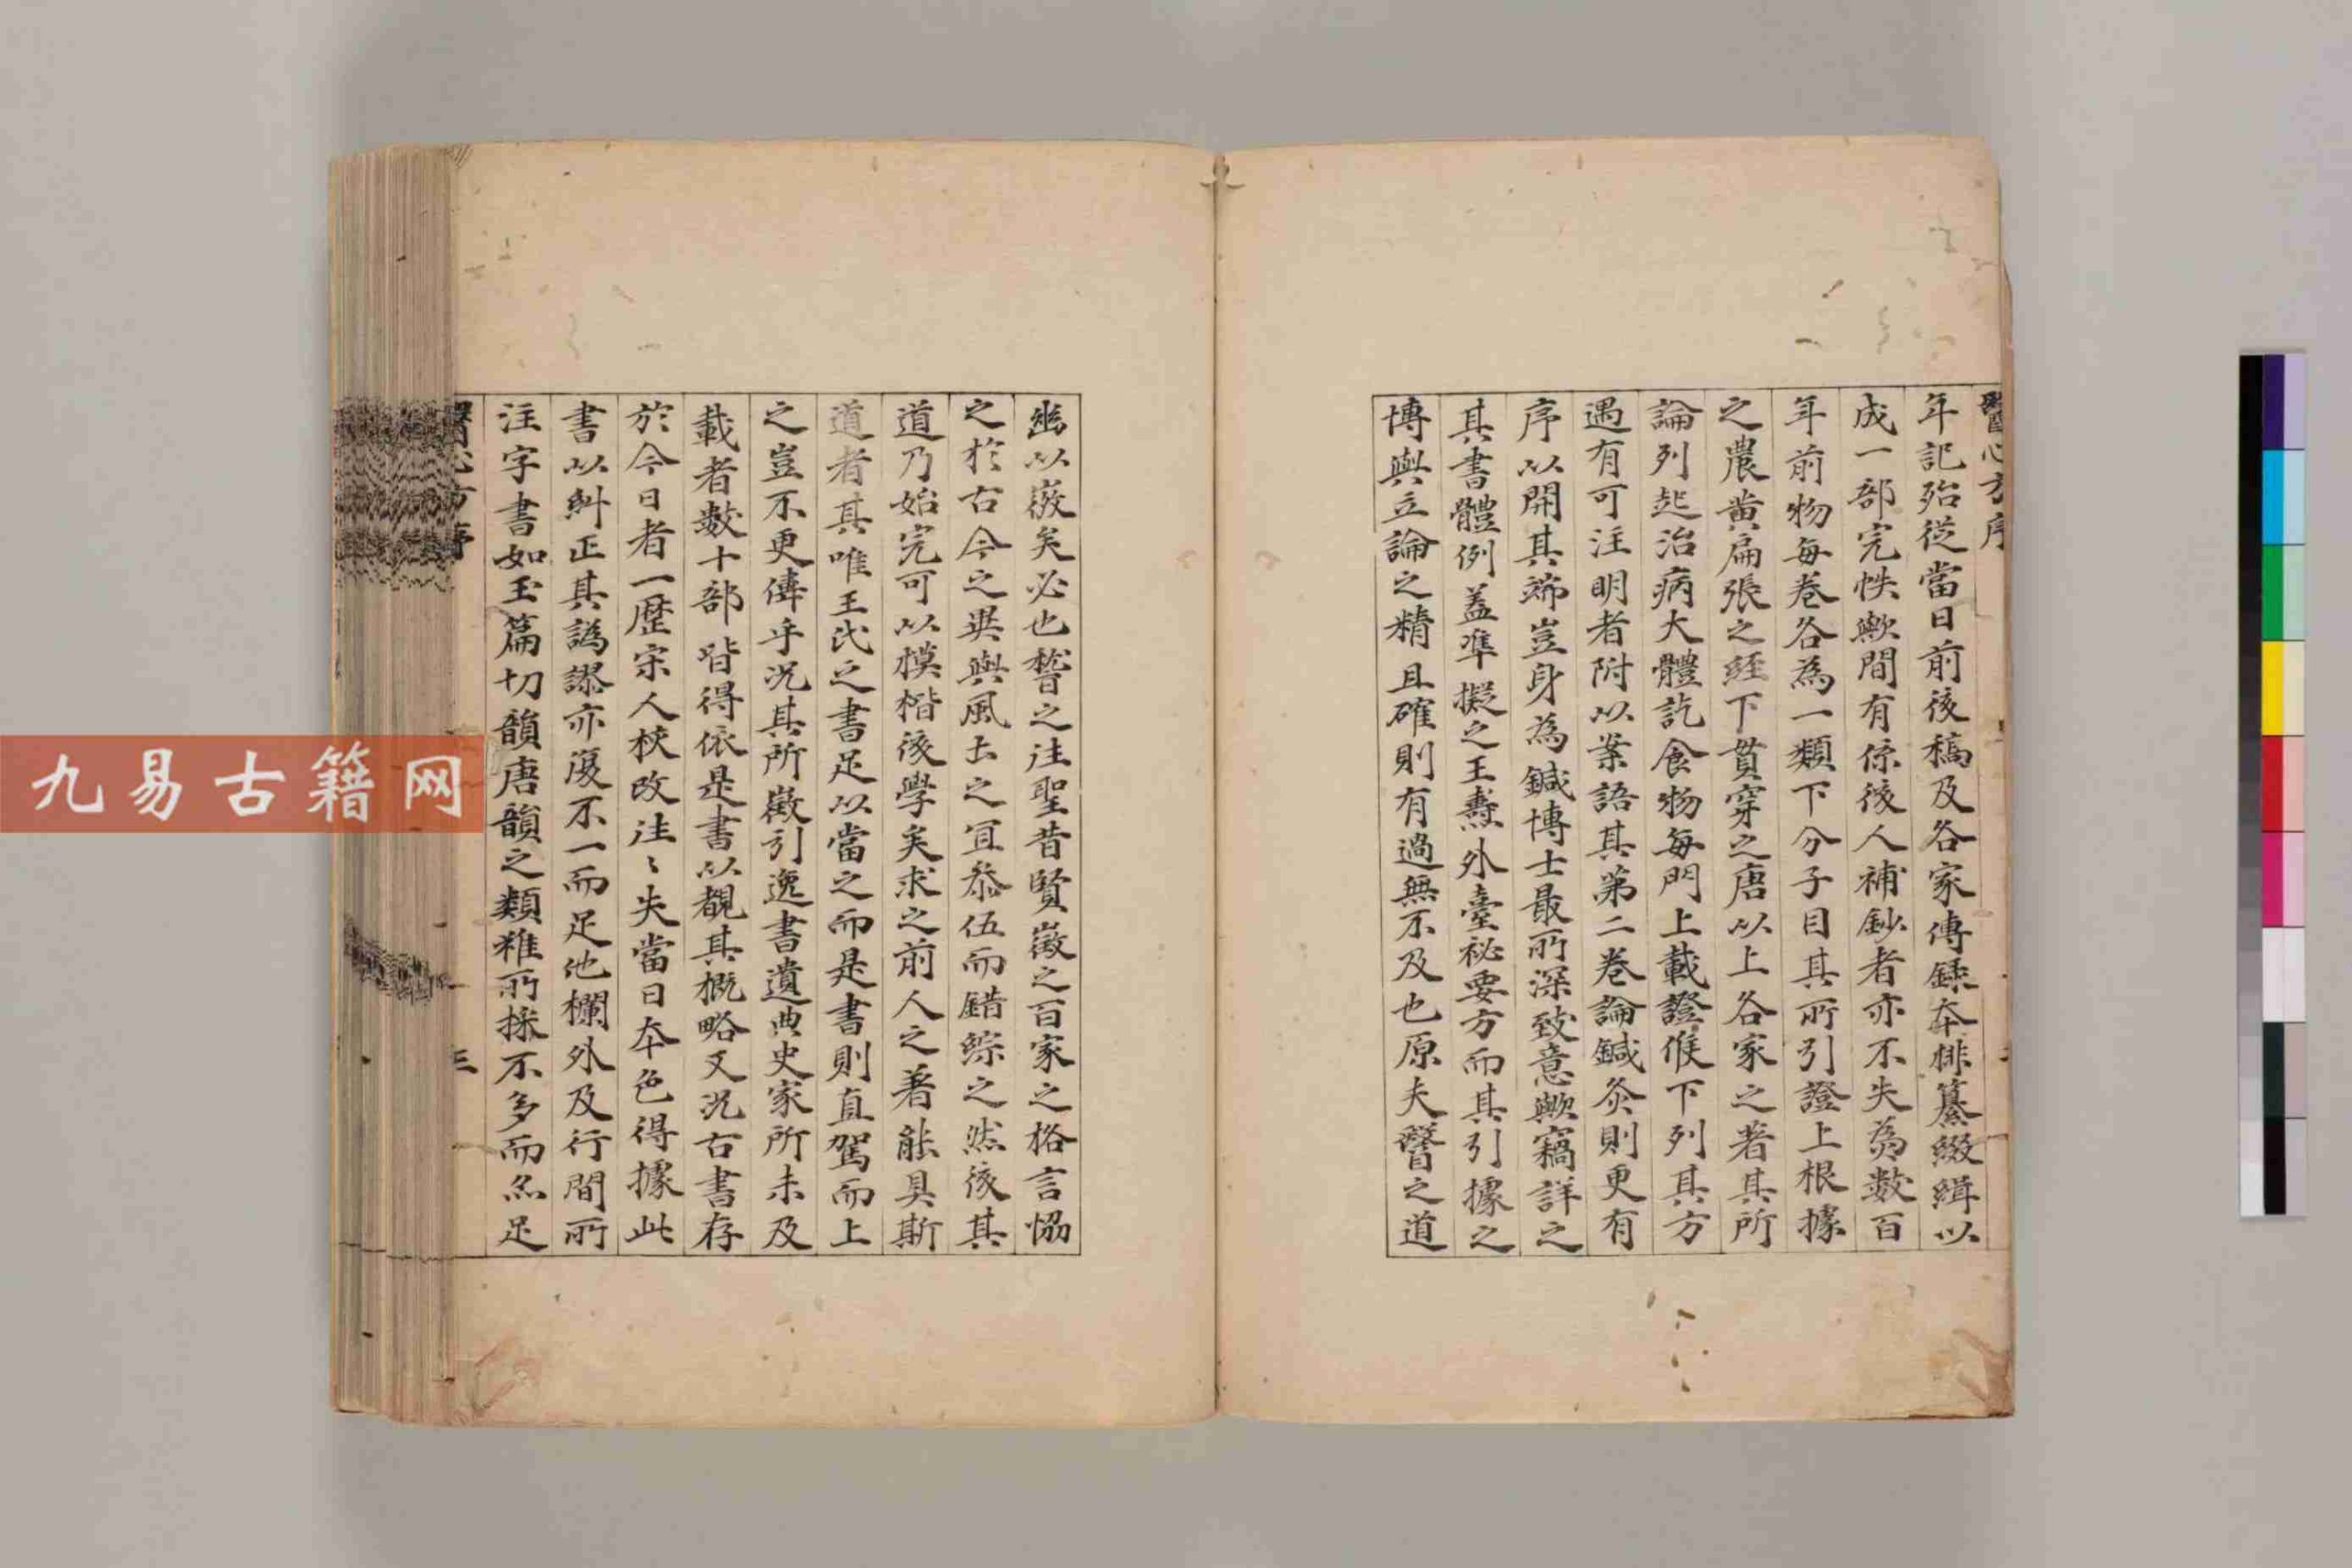 醫心方序
年記殆從當日前後稿及各家傳錄夲排纂綴緝以
成一部完帙歟間有係後人補鈔者亦不失為數百
年前物每卷各為一類下分子目其所引證上根據
之農黄扁張之經下貫穿之唐以上各家之著其所
論列起治病大體訖食物每門上載證候下列其方
遇有可注明者附以案語其第二卷論鍼灸則更有
序以開其端豈身為鍼博士最所深致意歟竊詳之
其書體例葢準擬之王燾外臺祕要方而其引據之
博與立論之精且確則有過無不及也原夫醫之道
幽以微矣必也稽之往聖昔賢徵之百家之格言恊
之於古今之異與風土之宜叅伍而錯綜之然後其
道乃始完可以模楷後學矣求之前人之著能具斯
道者其唯王氏之書足以當之而是書則直駕而上
之豈不更偉乎況其所徵引逸書遺典史家所未及
載者數十部皆得依是書以覩其概略又況古書存
於今日者一歷宋人校改往〻失當日夲色得據此
書以糾正其譌謬亦復不一而足他欄外及行間所
注字書如玉篇切韻唐韻之類雖所採不多而尒足
醫心方序
三
九易古籍网